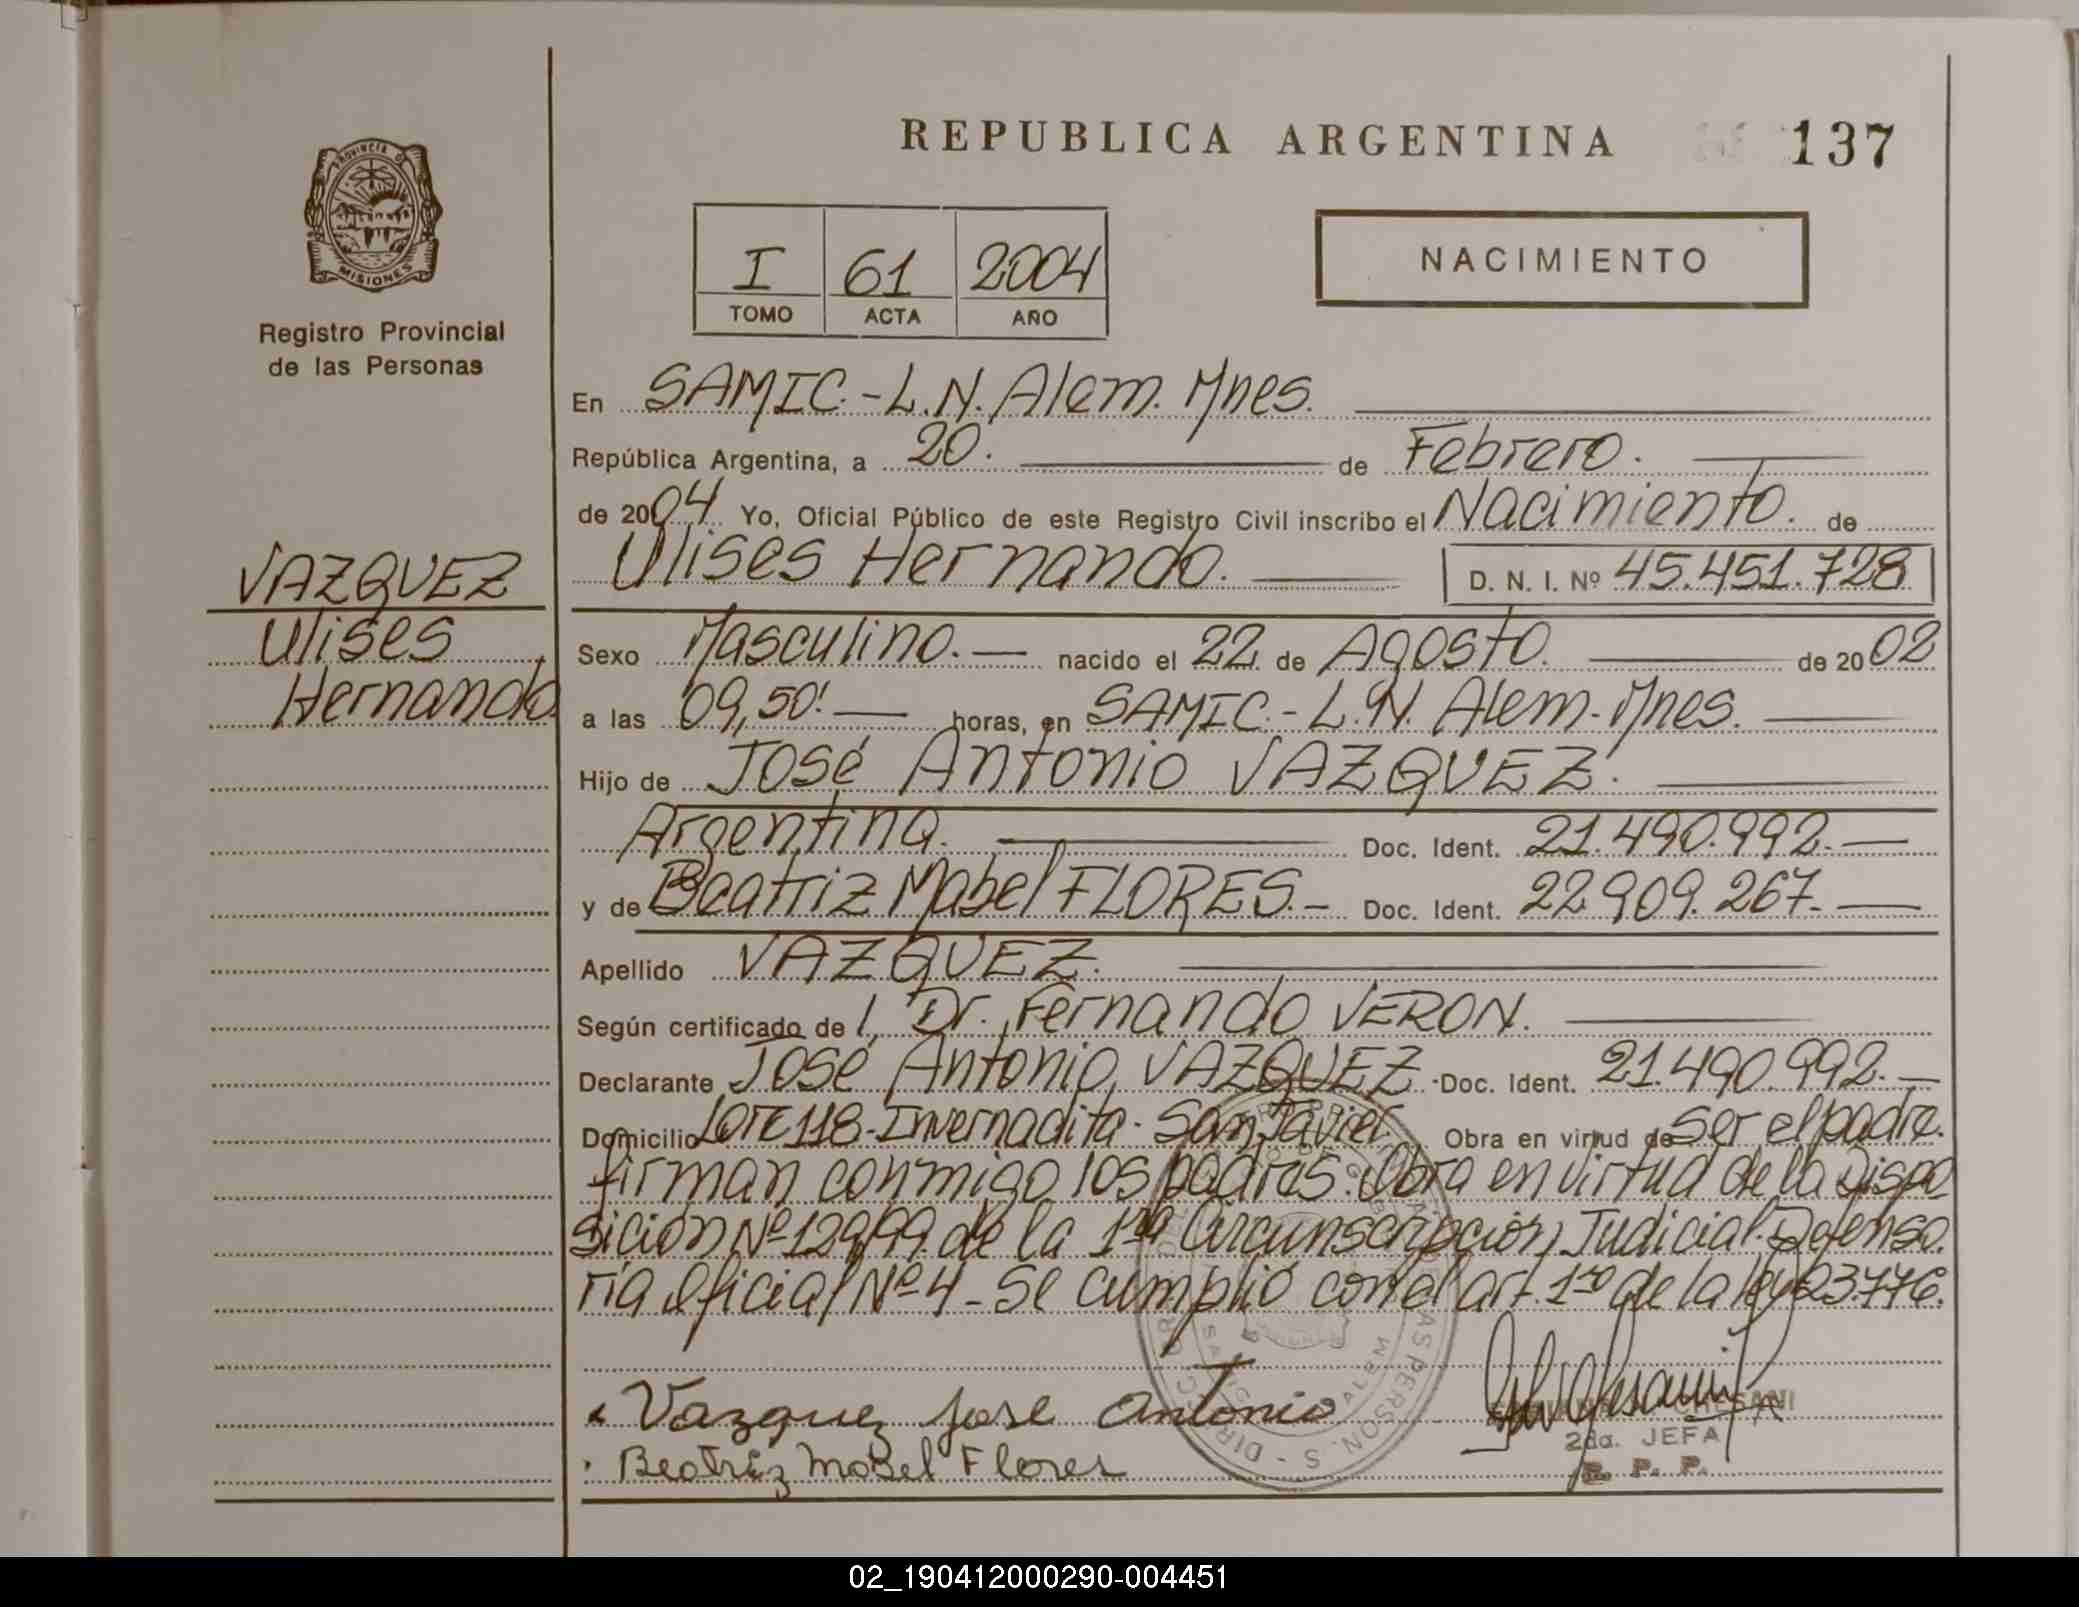 REPUBLICA ARGENTINA 137
PROVINCIA D
MISIONES
Registro Provincial
de las Personas
I 61 2004
TOMO ACTA AÑO
NACIMIENTO
En SAMIC.-L.N. Alem. Mnes.
República Argentina, a 20. de Febrero.
de 2004 Yo, Oficial Público de este Registro Civil inscribo el Nacimiento. de
Ulises Hernando. D. N. I. Nº 45.451.728
VAZQUEZ
Ulises
Hernando.
Sexo Masculino.- nacido el 22 de Agosto. de 2002
a las 09,50'.- horas, en SAMIC.-L.N. Alem.-Mnes.
Hijo de José Antonio VAZQUEZ.
Argentina. Doc. Ident. 21.490.992.-
y de Beatriz Mabel FLORES.- Doc. Ident. 22.909.267.-
Apellido VAZQUEZ.
Según certificado de l, Dr. Fernando VERON.
Declarante José Antonio VAZQUEZ. Doc. Ident. 21.490.992.-
Domicilio Lote 118-Invernadita-San Javier. Obra en virtud de ser el padre.
firman conmigo los padres. Obra en virtud de la Dispo
sición Nº 129/99 de la 1ra Circunscripción Judicial Defenso.
ría Oficial Nº 4- se cumplió con el art. 1ro de la ley 23.776.
Vazquez jose antonio
Beatriz Mabel Flores
2da. JEFA
R. P. P.
02_190412000290-004451